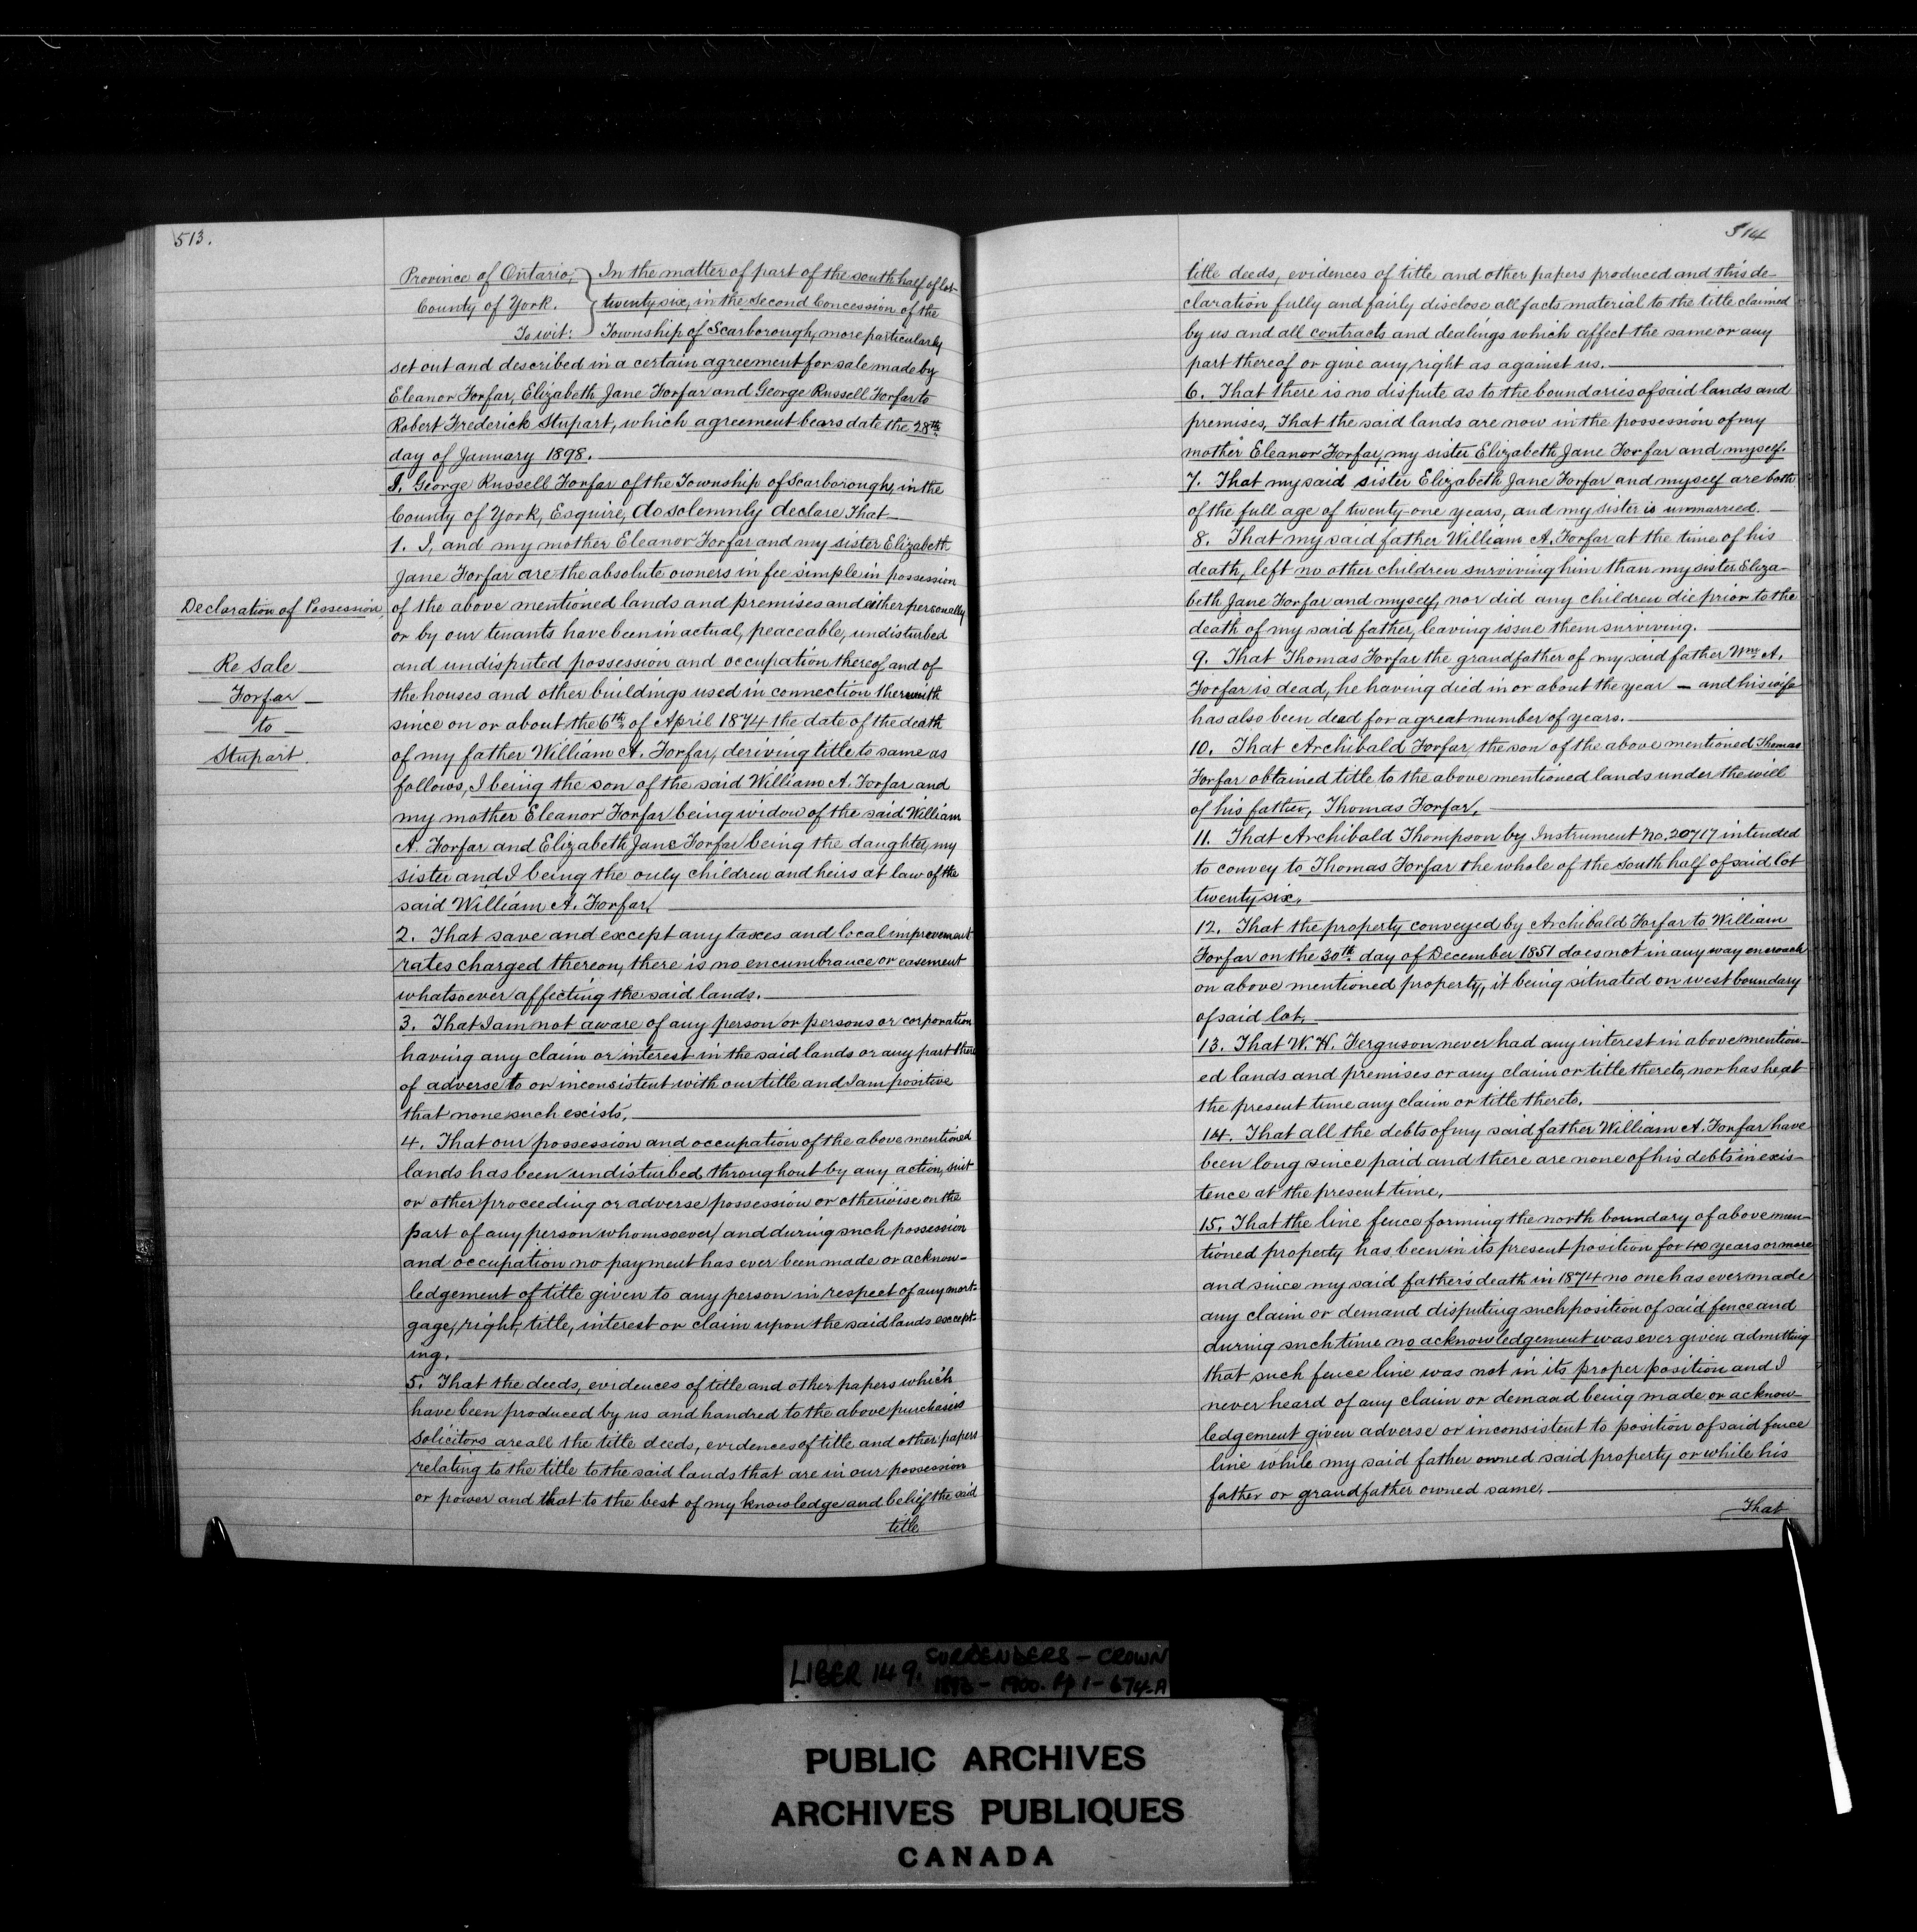 513.
Province of Ontario, } In the matter of part of the south half of lot
County of York. { twenty six, in the Second Concession of the
To wit: } Township of Scarborough, more particularly
set out and described in a certain agreement for sale made by
Eleanor Forfar, Elizabeth Jane Forfar and George Russell Forfar to
Robert Frederick Stupart, which agreement bears date the 28th
day of January 1898.
I, George Russell Forfar of the Township of Scarborough, in the
County of York, Esquire, do solemnly declare That
1. I, and my mother Eleanor Forfar and my sister Elizabeth
Jane Forfar are the absolute owners in fee simple in possession
Declaration of Possession,
of the above mentioned lands and premises and either personally
or by our tenants have been in actual, peaceable, undisturbed
Re Sale
and undisputed possession and occupation thereof, and of
Forfar
the houses and other buildings used in connection therewith
to
since on or about the 6th of April 1874 the date of the death
Stupart.
of my father William A. Forfar, deriving title to same as
follows, I being the son of the said William A. Forfar and
my mother Eleanor Forfar being widow of the said William
A. Forfar and Elizabeth Jane Forfar being the daughter, my
sister and I being the only children and heirs at law of the
said William A. Forfar,
2. That save and except any taxes and local improvement
rates charged thereon, there is no encumbrance or easement
whatsoever affecting the said lands.
3. That I am not aware of any person or persons or corporation
having any claim or interest in the said lands or any part there
of adverse to or inconsistent with our title and I am positive
that none such exists,
4. That our possession and occupation of the above mentioned
lands has been undisturbed throughout by any action, suit
or other proceeding or adverse possession or otherwise on the
part of any person whomsoever, and during such possession
and occupation no payment has ever been made or acknow-
ledgement of title given to any person in respect of any mort-
gage, right, title, interest or claim upon the said lands except-
ing.
5. That the deeds, evidences of title and other papers which
have been produced by us and handred to the above purchasers
Solicitors are all the title deeds, evidences of title and other papers
relating to the title to the said lands that are in our possession
or power and that to the best of my knowledge and belief, the said
title
514
title deeds, evidences of title and other papers produced and this de-
claration fully and fairly disclose all facts material to the title claimed
by us and all contracts and dealings which affect the same or any
part thereof or give any right as against us.
6. That there is no dispute as to the boundaries of said lands and
premises, That the said lands are now in the possession of my
mother Eleanor Forfar, my sister Elizabeth Jane Forfar and myself.
7. That my said sister Elizabeth Jane Forfar and myself are both
of the full age of twenty-one years, and my sister is unmarried.
8. That my said father William A. Forfar at the time of his
death, left no other children surviving him than my sister Eliza-
beth Jane Forfar and myself, nor did any children die prior to the
death of my said father, leaving issue them surviving.
9. That Thomas Forfar the grandfather of my said father Wm. A.
Forfar is dead, he having died in or about the year — and his wife
has also been dead for a great number of years.
10. That Archibald Forfar the son of the above mentioned Thomas
Forfar obtained title to the above mentioned lands under the will
of his father, Thomas Forfar,
11. That Archibald Thompson by Instrument No. 20717 intended
to convey to Thomas Forfar the whole of the south half of said lot
twenty six,
12. That the property conveyed by Archibald Forfar to William
Forfar on the 30th day of December 1851 does not in any way encroach
on above mentioned property, it being situated on west boundary
of said lot,
13. That W. H. Ferguson never had any interest in above mention-
ed lands and premises or any claim or title thereto, nor has he at
the present time any claim or title thereto.
14. That all the debts of my said father William A. Forfar have
been long since paid and there are none of his debts in exis-
tence at the present time,
15. That the line fence forming the north boundary of above men-
tioned property has been in its present position for 40 years or more
and since my said father's death in 1874 no one has ever made
any claim or demand disputing such position of said fence and
during such time no acknowledgement was ever given admitting
that such fence line was not in its proper position and I
never heard of any claim or demand being made or acknow-
ledgement given adverse or inconsistent to position of said fence
line while my said father owned said property or while his
father or grandfather owned same,
That
LIBER 149. SURRENDERS - CROWN
1896 - 1900. Pp 1 - 674-A
PUBLIC ARCHIVES
ARCHIVES PUBLIQUES
CANADA